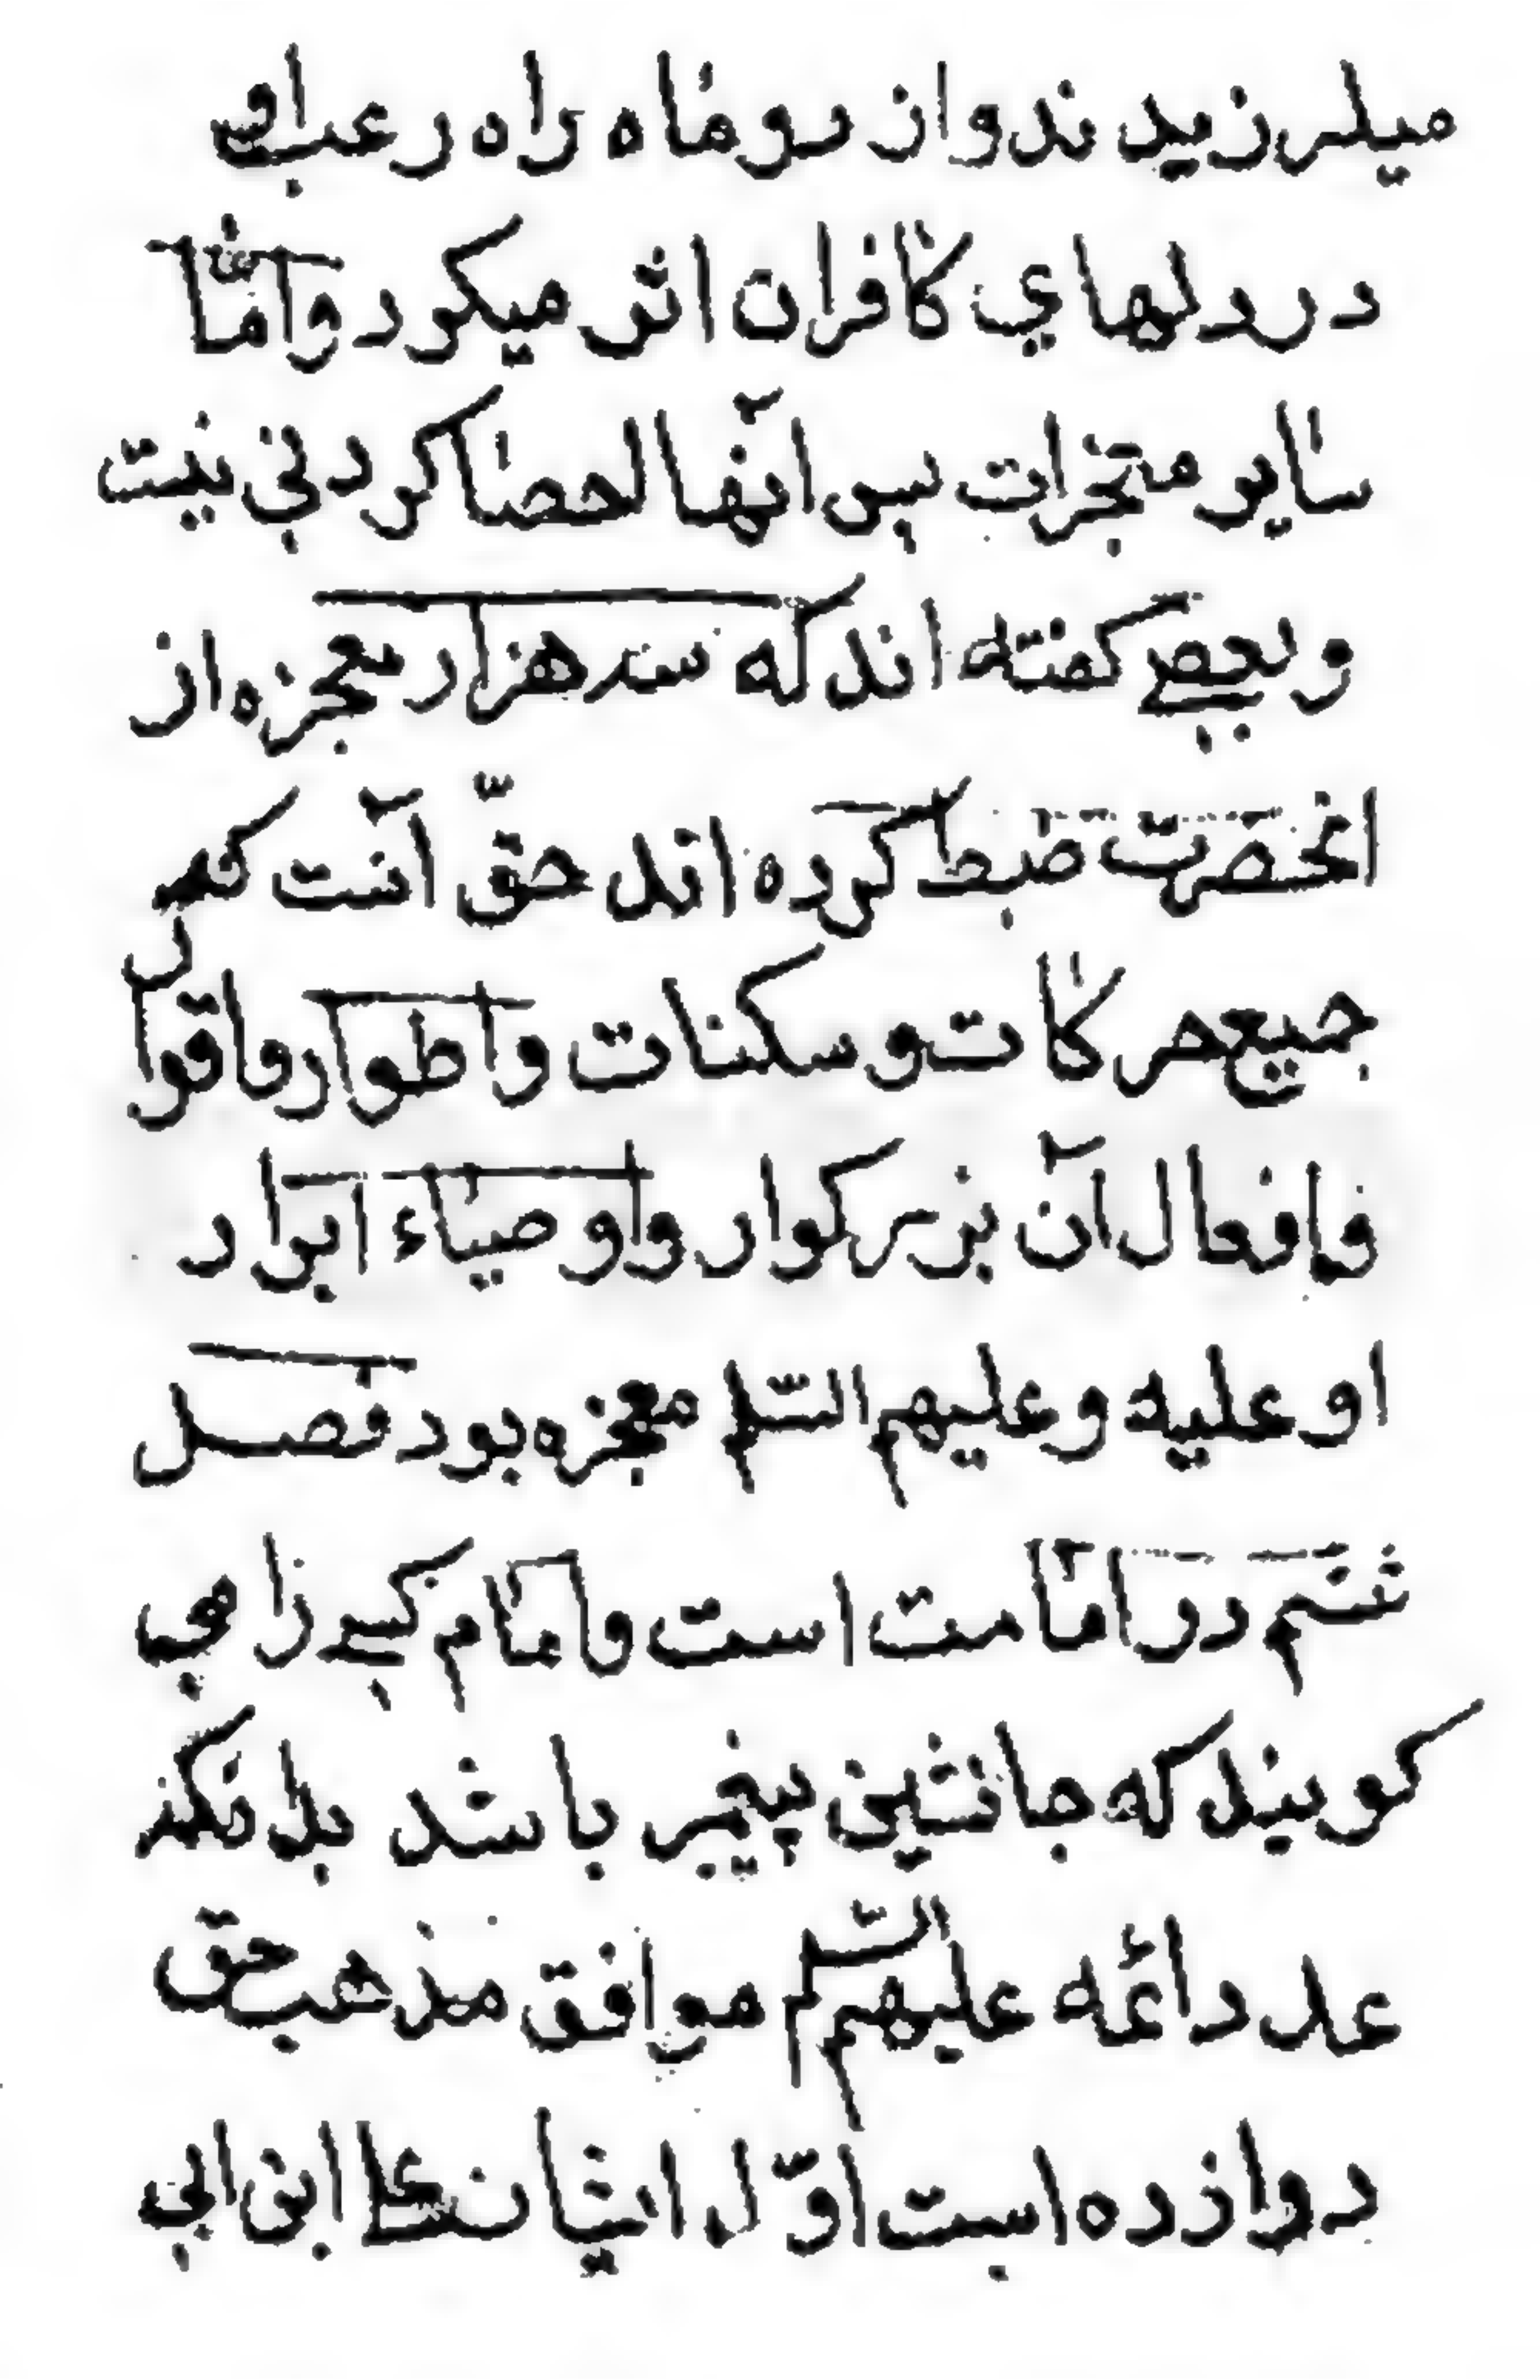 میلرزیدند و از دو ماه راه رعب او
در دلهاي کافران اثر میکرد و امّا
سایر معجزات پس آنها احصا کردنی نیست
و بعضي کفته اند که سه هزار معجزه از
انحضرت ضبط کرده اند حقّ آنست که
جمیع حرکات و سکنات و اطوار و اقوال
و افعال آن بزرکوار و اوصیاء ابرار
او علیه و علیهم السّلم معجزه بود فصل
ششم در امامت است و امام کسی را می
کویند که جانشین پیغمبر باشد بدانکه
عدد ائمه علیهم السّلم موافق مذهب حق
دوازده است اوّل ایشان علی ابن ابی